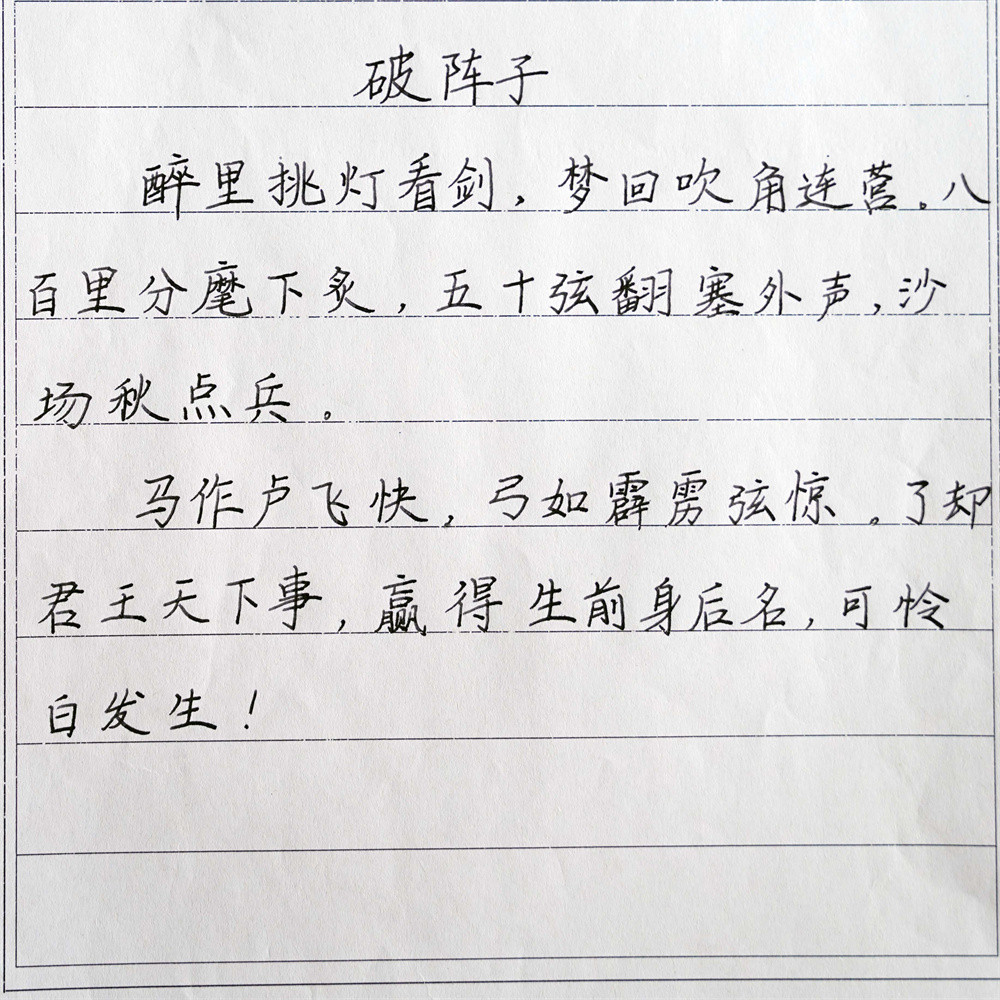 破阵子
醉里挑灯看剑，梦回吹角连营。八
百里分麾下炙，五十弦翻塞外声，沙
场秋点兵。
马作卢飞快，弓如霹雳弦惊。了却
君王天下事，赢得生前身后名，可怜
白发生！